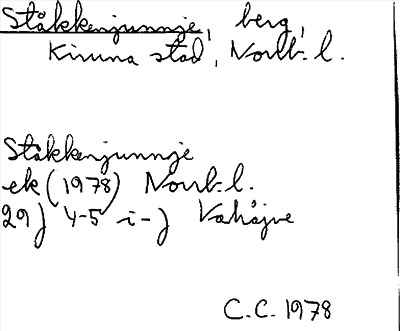 Ståkkenjunnje, berg,
Kiruna stad, Norrb. l.
Ståkkenjunnje
ek (1978) Norrb. l.
29J 4-5 i-j Vahåjve
C.C. 1978